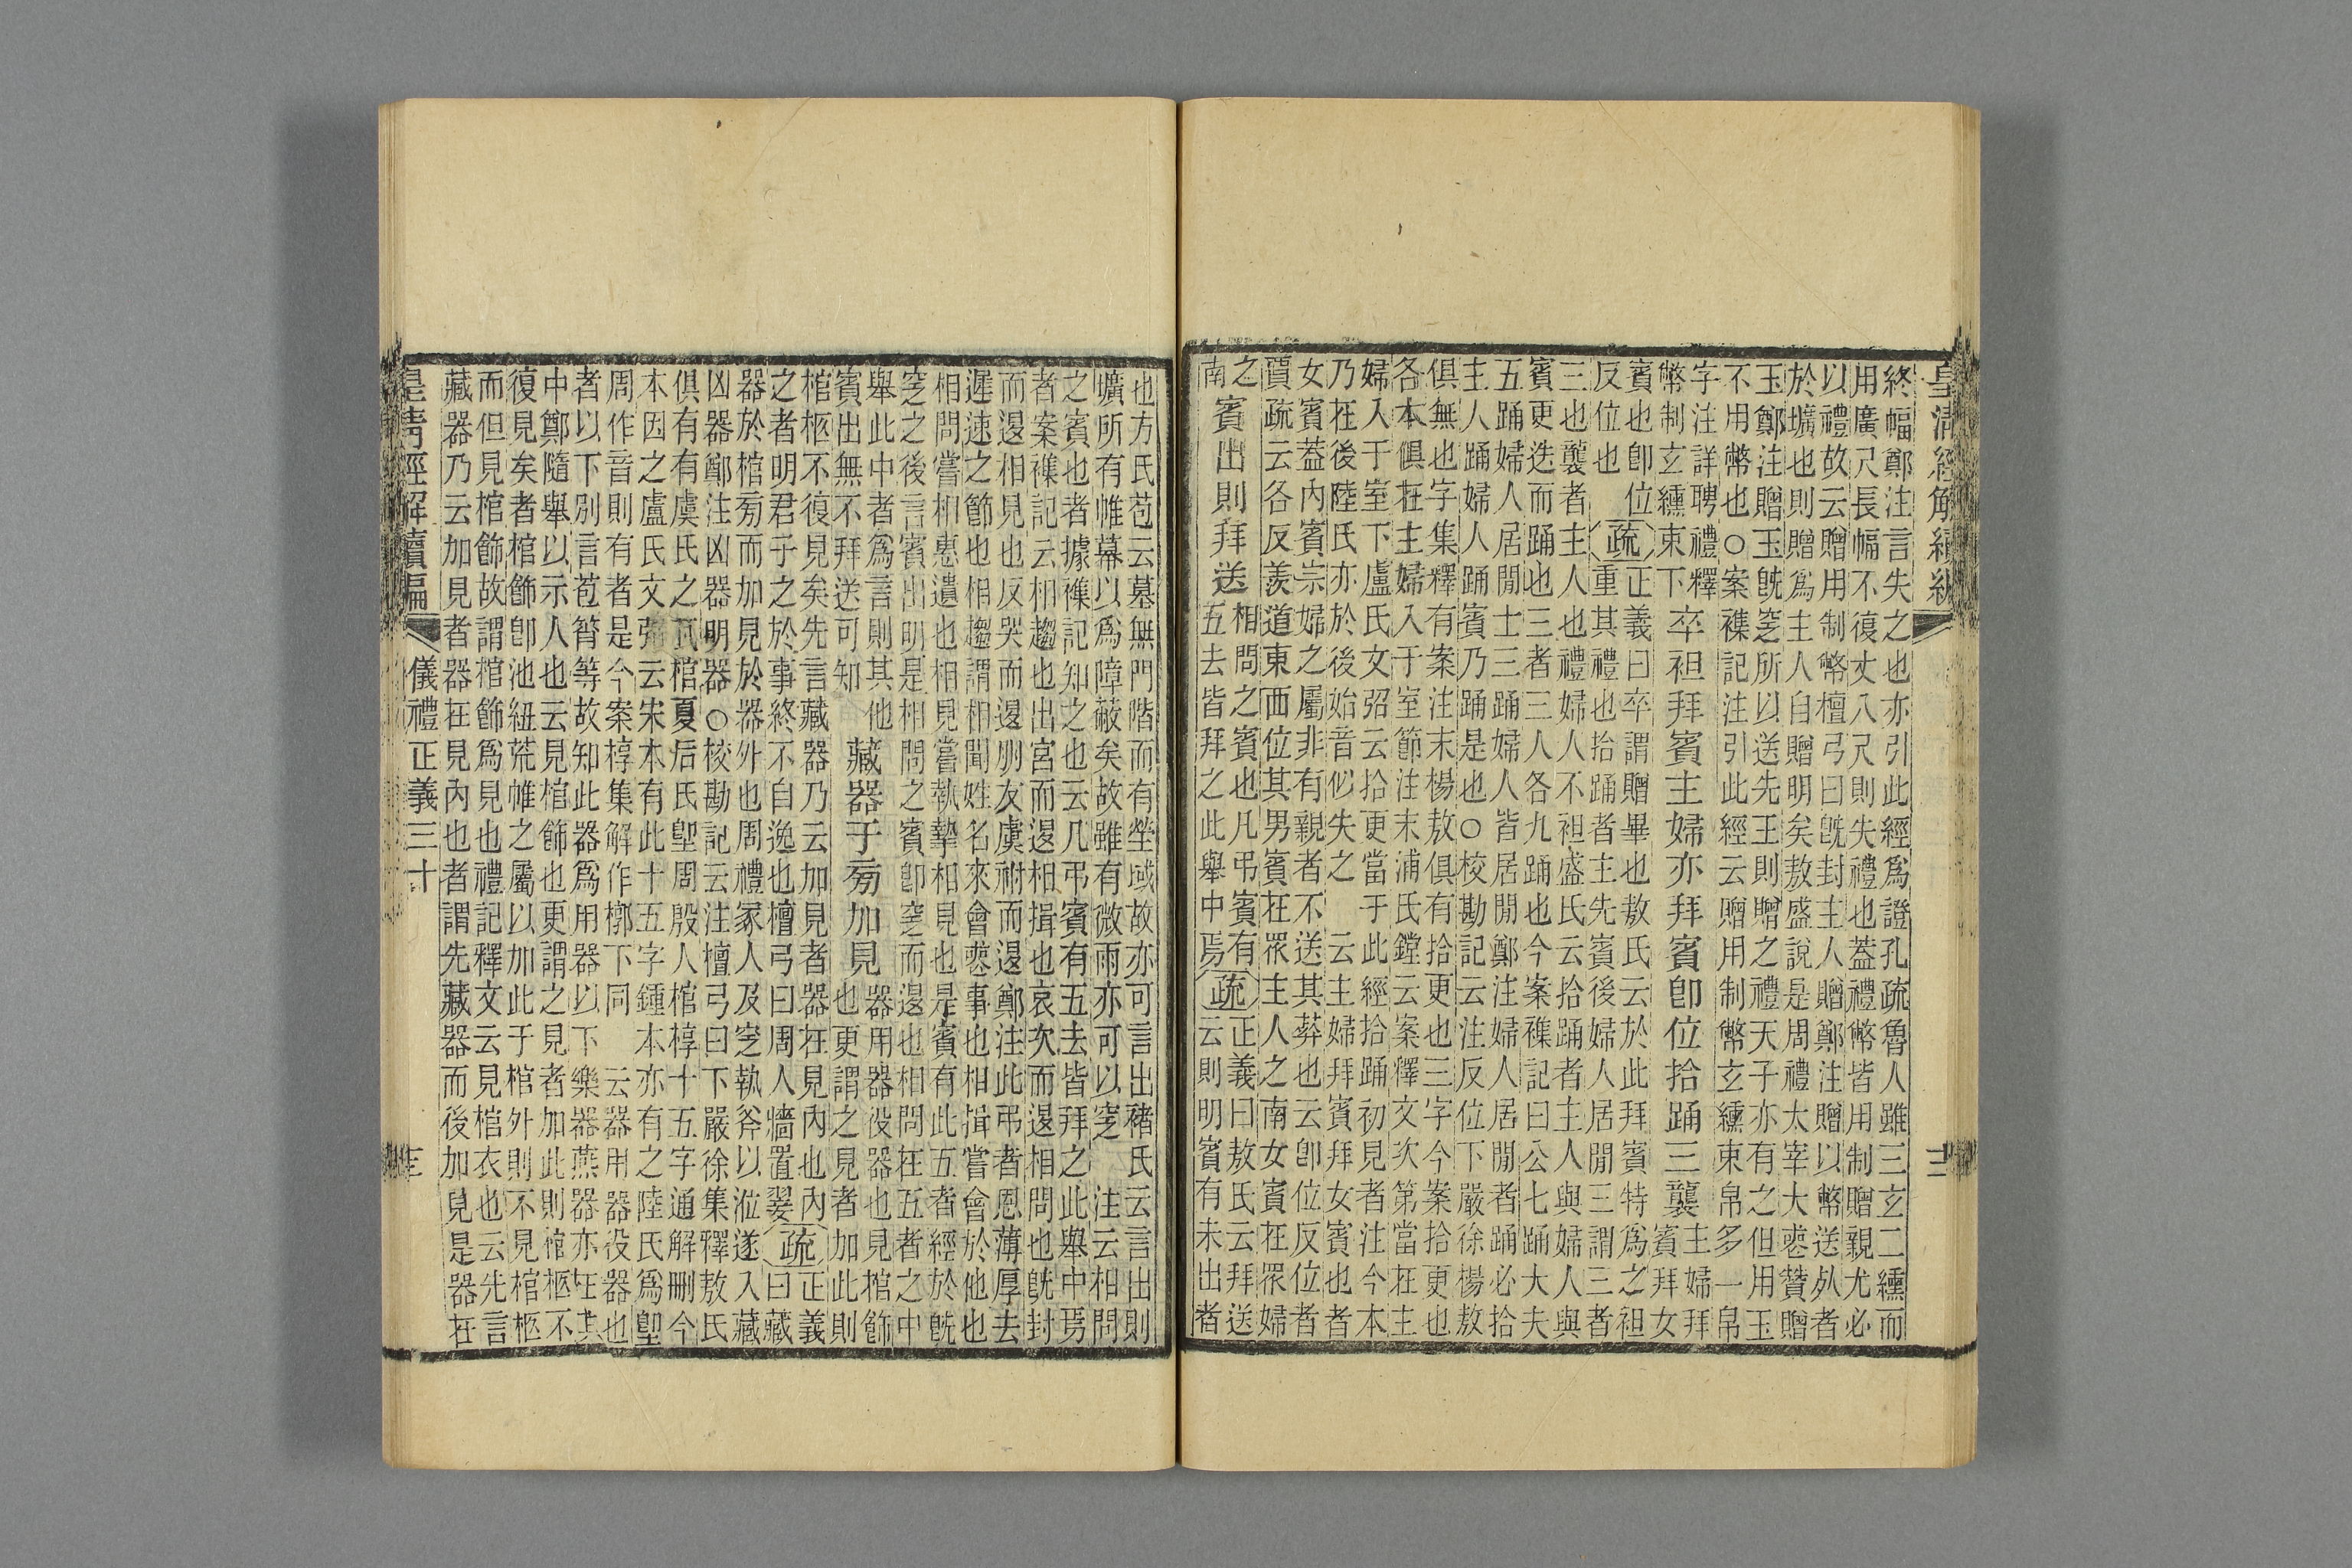 皇清經解續編 十二
終幅鄭注言失之也亦引此經爲證孔疏魯人雖三玄二纁而
用廣尺長幅不復丈八尺則失禮也蓋禮幣皆用制贈親尤必
以禮故云贈用制幣檀弓曰旣封主人贈鄭注贈以幣送死者
於壙也則贈爲主人自贈明矣敖盛說是周禮太宰大喪贊贈
玉鄭注贈玉旣窆所以送先王則贈之禮天子亦有之但用玉
不用幣也○案襍記注引此經云贈用制幣玄纁束帛多一帛
字注詳聘禮釋
幣制玄纁束下
卒袒拜賓主婦亦拜賓卽位拾踊三襲
主婦拜
賓拜女
賓也卽位
反位也
疏
正義曰卒謂贈畢也敖氏云於此拜賓特爲之袒
重其禮也拾踊者主先賓後婦人居閒三謂三者
三也襲者主人也禮婦人不袒盛氏云拾踊者主人與婦人與
賓更迭而踊也三者三人各九踊也今案襍記曰公七踊大夫
五踊婦人居閒士三踊婦人皆居閒鄭注婦人居閒者踊必拾
主人踊婦人踊賓乃踊是也○校勘記云注反位下嚴徐楊敖
俱無也字集釋有案注末楊敖俱有拾更也三字今案拾更也
各本俱在主婦入于室節注末浦氏鏜云案釋文次第當在主
婦入于室下盧氏文弨云拾更當于此經拾踊初見者注今本
乃在後陸氏亦於後始音似失之 云主婦拜賓拜女賓也者
女賓蓋內賓宗婦之屬非有親者不送其葬也云卽位反位者
賈疏云各反羨道東西位其男賓在衆主人之南女賓在衆婦
之
南
賓出則拜送
相問之賓也凡弔賓有
五去皆拜之此舉中焉
疏
正義曰敖氏云拜送
云則明賓有未出者
也方氏苞云墓無門階而有塋域故亦可言出褚氏云言出則
壙所有帷幕以爲障蔽矣故雖有微雨亦可以窆 注云相問
之賓也者據襍記知之也云凡弔賓有五去皆拜之此舉中焉
者案襍記云相趨也出宮而退相揖也哀次而退相問也旣封
而退相見也反哭而退朋友虞祔而退鄭注此弔者恩薄厚去
遲速之節也相趨謂相聞姓名來會喪事也相揖嘗會於他也
相問嘗相惠遺也相見嘗執摯相見也是賓有此五者經於旣
窆之後言賓出明是相問之賓卽窆而退也相問在五者之中
舉此中者爲言則其他
賓出無不拜送可知
藏器于旁加見
器用器役器也見棺飾
也更謂之見者加此則
棺柩不復見矣先言藏器乃云加見者器在見內也內
之者明君子之於事終不自逸也檀弓曰周人牆置翣
疏
正義
曰藏
器於棺旁而加見於器外也周禮冢人及窆執斧以涖遂入藏
凶器鄭注凶器明器○校勘記云注檀弓曰下嚴徐集釋敖氏
俱有有虞氏之瓦棺夏后氏堲周殷人棺椁十五字通解刪今
本因之盧氏文弨云宋本有此十五字鍾本亦有之陸氏爲堲
周作音則有者是今案椁集解作槨下同 云器用器役器也
者以下別言苞筲等故知此器爲用器以下樂器燕器亦在其
中鄭隨舉以示人也云見棺飾也更謂之見者加此則棺柩不
復見矣者棺飾卽池紐荒帷之屬以加此于棺外則不見棺柩
而但見棺飾故謂棺飾爲見也禮記釋文云見棺衣也云先言
藏器乃云加見者器在見內也者謂先藏器而後加見是器在
皇清經解續編 儀禮正義三十